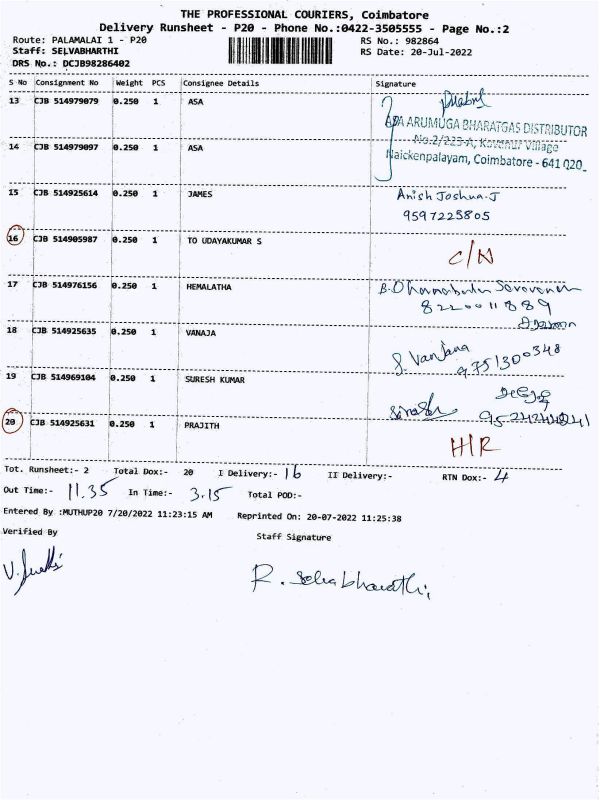 THE PROFESSIONAL COURIERS, Coimbatore
Delivery Runsheet - P20 - Phone No.:0422-3505555 - Page No.:2
Route: PALAMALAI 1 - P20
RS No.: 982864
Staff: SELVABHARTHI
RS Date: 20-Jul-2022
DRS No.: DCJB98286402
S No Consignment No Weight PCS Consignee Details Signature
13 CJB 514979079 0.250 1 ASA
ARUMUGA BHARATGAS DISTRIBUTOR
No.2/223-A, Kovanur Village
14 CJB 514979097 0.250 1 ASA
Naickenpalayam, Coimbatore - 641 020
15 CJB 514925614 0.250 1 JAMES Anish Joshua.J
9597225805
16 CJB 514905987 0.250 1 TO UDAYAKUMAR S
C/N
17 CJB 514976156 0.250 1 HEMALATHA
8220011889
18 CJB 514925635 0.250 1 VANAJA
S. Vanjana
9751300348
19 CJB 514969104 0.250 1 SURESH KUMAR
20 CJB 514925631 0.250 1 PRAJITH
H/R
Tot. Runsheet:- 2 Total Dox:- 20 I Delivery:- 16 II Delivery:- RTN Dox:- 4
Out Time:- 11.35 In Time:- 3.15 Total POD:-
Entered By :MUTHUP20 7/20/2022 11:23:15 AM Reprinted On: 20-07-2022 11:25:38
Verified By
Staff Signature
R. Selvabharathi